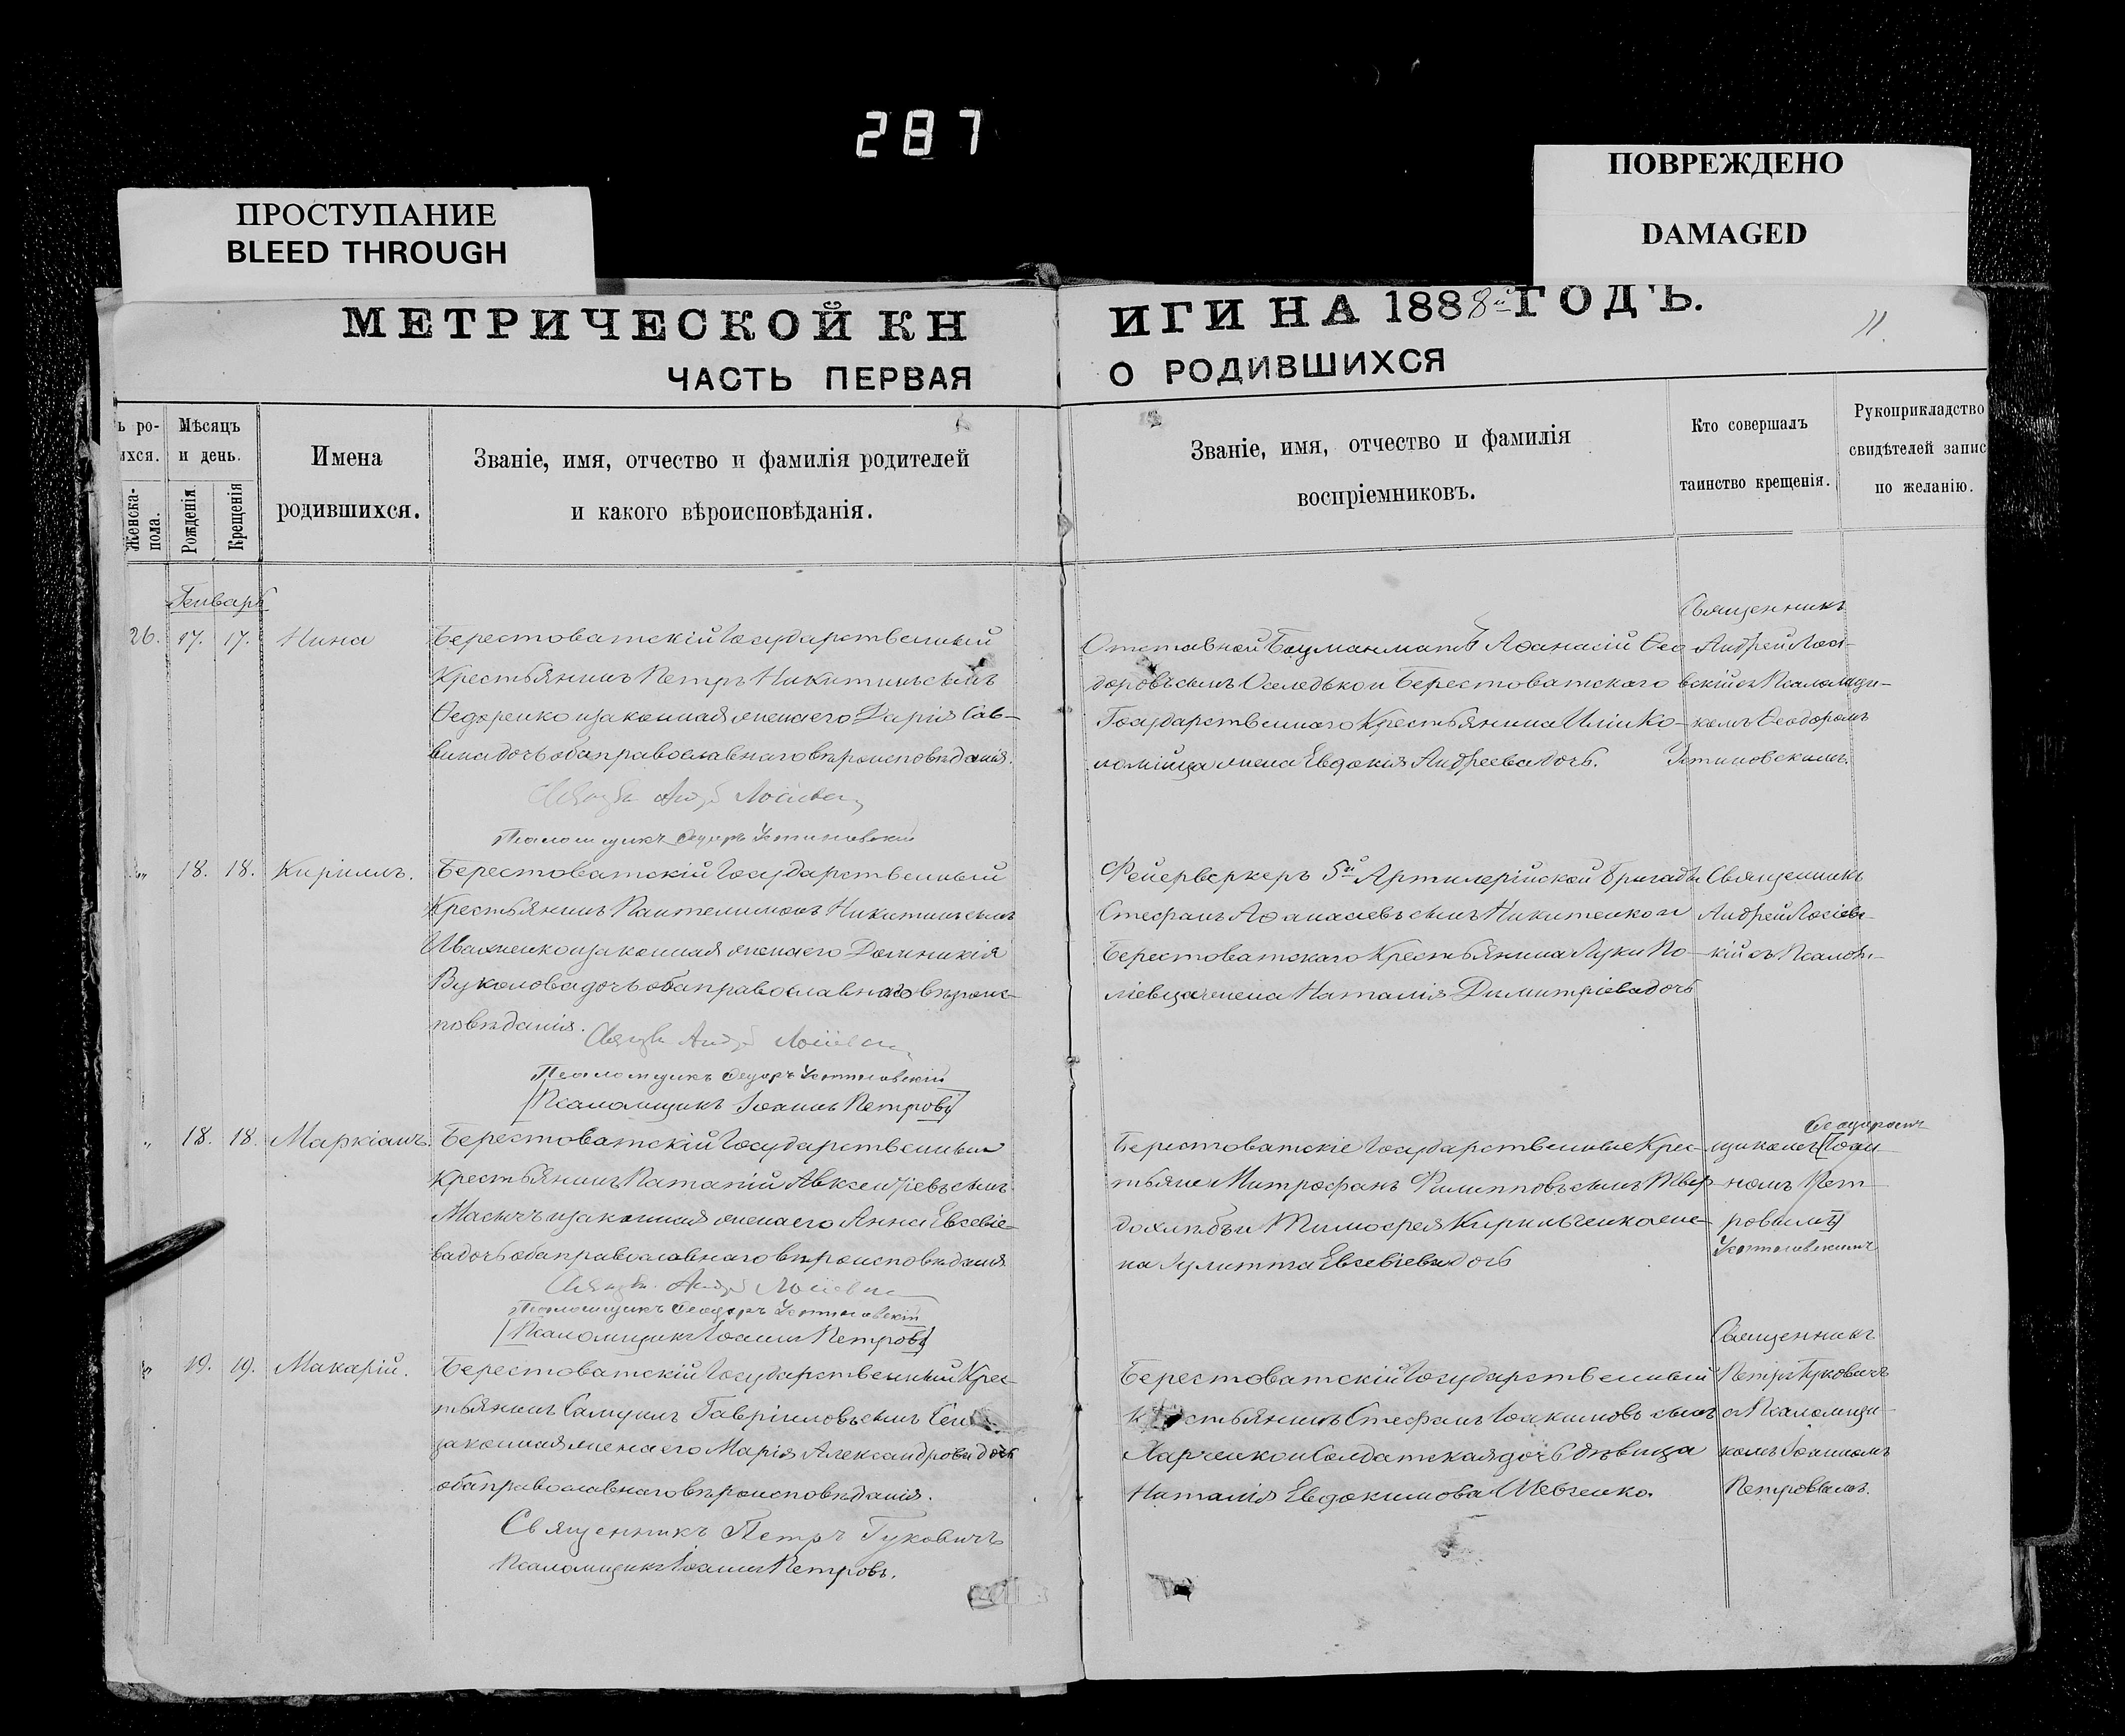 287
ПРОСТУПАНИЕ
BLEED THROUGH
ПОВРЕЖДЕНО
DAMAGED
МЕТРИЧЕСКОЙ КН
ЧАСТЬ ПЕРВАЯ
ИГИ НА 1888й ГОДЪ.
О РОДИВШИХСЯ
11.
ь ро-
ихся.
Женска-
пола.
Мѣсяцъ
и день.
Рожденія.
Крещенія
Имена
родившихся.
Званіе, имя, отчество и фамилія родителей
и какого вѣроисповѣданія.
Званіе, имя, отчество и фамилія
воспріемниковъ.
Кто совершалъ
таинство крещенія.
Рукоприкладство
свидѣтелей запис
по желанію.
Генварь
26. 17. 17. Нина
Берестоватскій Государственный
Крестьянинъ Петръ Никитинъ сынъ
Ѳедоренко и законная жена его Дарія Сав-
вина дочь оба православнаго вѣроисповѣданія.
Псаломщикъ Ѳеодоръ Устиновскій
Отставной Боцманматъ Аѳанасій Ѳео
доровъ сынъ Оселедько и Берестоватскаго
Государственнаго Крестьянина Иліи Ко-
ломійца жена Евдокія Андреева дочь.
Священникъ
Андрей Лосі-
евскій съ Псаломщи-
комъ Ѳеодоромъ
Устиновскимъ.
18. 18. Кириллъ.
Берестоватскій Государственный
Крестьянинъ Пантелимонъ Никитинъ сынъ
Иваненко и законная жена его Домникія
Вуколова дочь оба православнаго вѣроис-
повѣданія.
Псаломщикъ Ѳеодоръ Устиновскій
[Псаломщикъ Іоаннъ Петровъ]
Фейерверкеръ 5й Артилерійской бригады
Стефанъ Аѳанасіевъ сынъ Никитенко и
Берестоватскаго Крестьянина Луки По-
лівца жена Наталія Димитріева дочь
Священникъ
Андрей Лосіевс-
кій съ Псалом-
18. 18. Маркіанъ.
Берестоватскій Государственный
Крестьянинъ Ипатій Авксентіевъ сынъ
Масичъ и законная жена его Анна Евсевіе-
ва дочь оба православнаго вѣроисповѣданія
Псаломщикъ Ѳеодоръ Устиновскій
[Псаломщикъ Іоаннъ Петровъ]
Берестоватскіе Государственные Крес-
тьяне Митрофанъ Филипповъ сынъ Твер
дохлѣбъ и Тимофея Кириченка же-
на Іулитта Евсевіева дочь
Ѳеодоромъ
щикомъ [Іоан-
номъ Пет-
ровымъ]
Устиновскимъ
19. 19. Макарій.
Берестоватскій Государственный Крес-
тьянинъ Самуилъ Гавріиловъ сынъ
законная жена его Марія Александрова дочь
оба православнаго вѣроисповѣданія.
Священникъ Петръ Гуковичъ
Псаломщикъ Іоаннъ Петровъ.
Берестоватскій Государственный
Крестьянинъ Стефанъ Іоакимовъ сынъ
Харченко и Солдатская дочь дѣвица
Наталія Евдокимова Шевченко.
Священникъ
Петръ Гуковичъ
съ Псаломщи-
комъ Іоанномъ
Петровымъ.